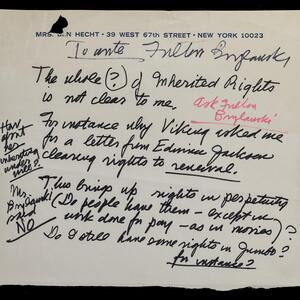 MRS. BEN HECHT • 39 WEST 67th STREET • NEW YORK 10023
To write Fulton Brylawski
The whole (?) of Inherited Rights
is not clear to me.
Ask Fulton
Brylawski
For instance why Viking asked me
for a letter from Edwina Jackson
clearing rights to renewal.
her
under
This brings up rights in perpetuity
Do people have them - except in
work done for pay - as in movies) ?
Mr.
Brylawski
said
NO
Do I still have some rights in Jumbo?
for instance?